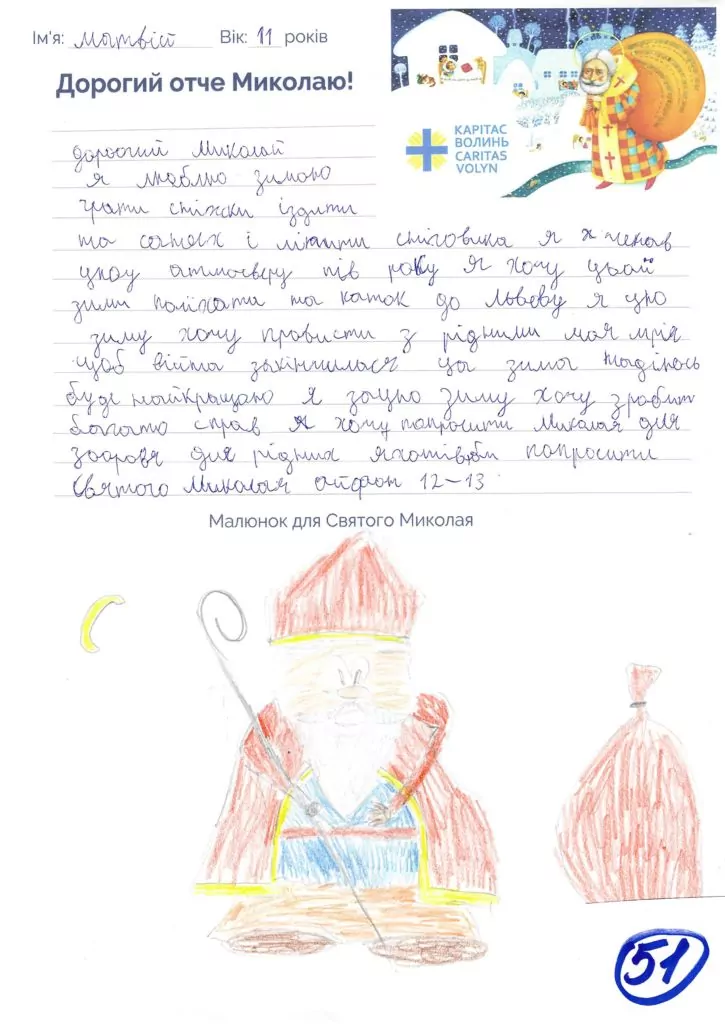 Ім'я: Матвій Вік: 11 років
Дорогий отче Миколаю!
КАРІТАС
ВОЛИНЬ
CARITAS
VOLYN
дорогий Миколай
я люблю зимою
грати сніжки їздити
на санках і ліпити сніговика я
цюу атмосверу пів року я хочу цьой
зими поїхати на каток до Львеву я цю
зиму хочу провисти з рідними моя мрія
щоб війна закінчилася ця зима
буде найкращою я зацю зиму хочу зробит
богато справ я хочу попросити Миколая для
здоровя для рідних попросити
святого Миколая айфон 12-13
Малюнок для Святого Миколая
51